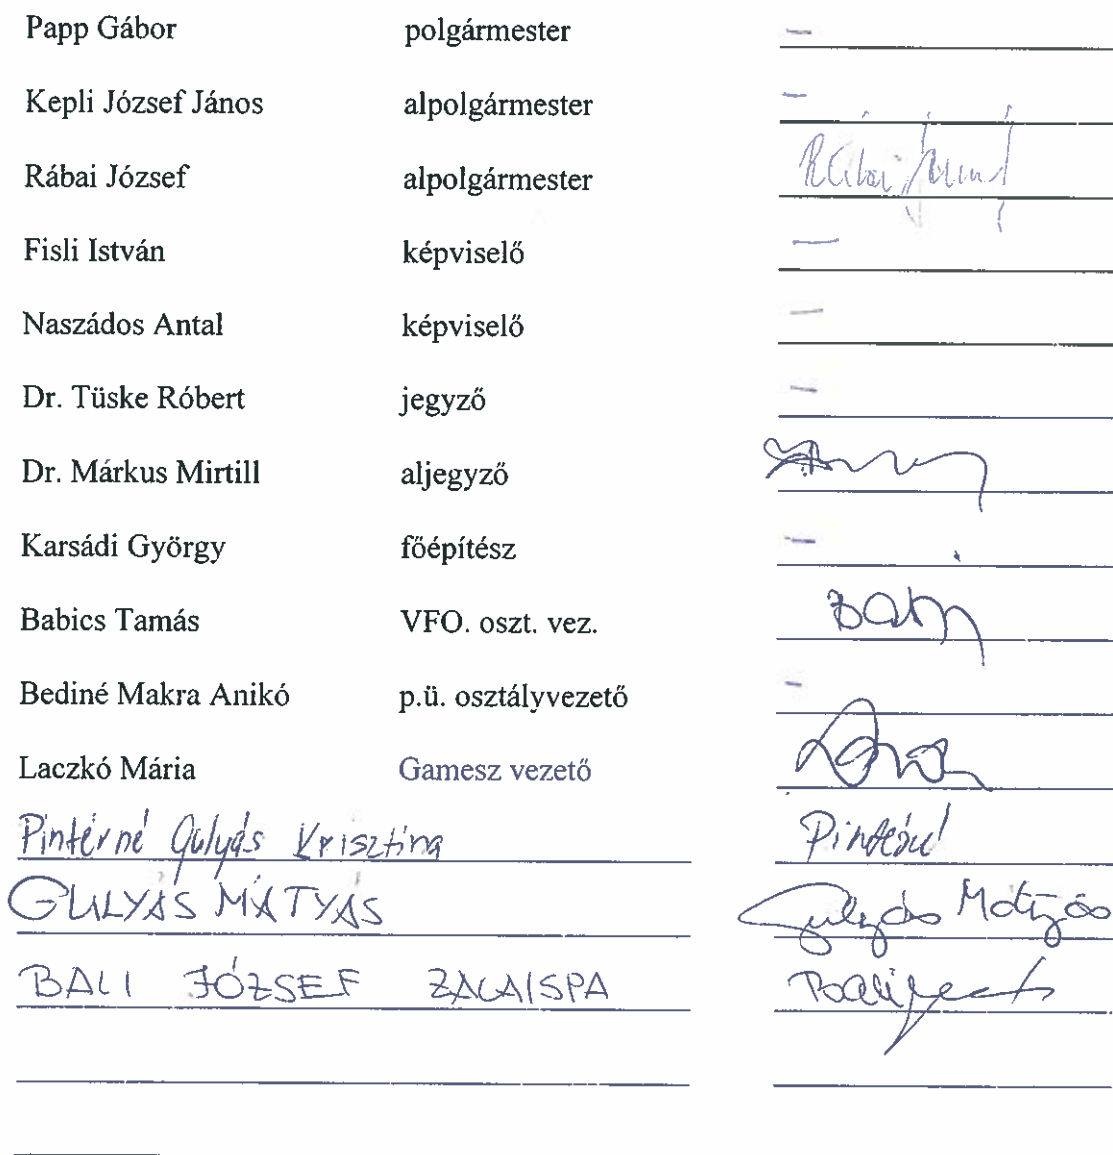 Papp Gábor polgármester -
Kepli József János alpolgármester -
Rábai József alpolgármester Rábai József
Fisli István képviselő -
Naszádos Antal képviselő -
Dr. Tüske Róbert jegyző -
Dr. Márkus Mirtill aljegyző
Karsádi György főépítész -
Babics Tamás VFO. oszt. vez.
Bediné Makra Anikó p.ü. osztályvezető -
Laczkó Mária Gamesz vezető
Pintérné Gulyás Krisztina Pintérné
GULYÁS MÁTYÁS Gulyás Mátyás
BALI JÓZSEF ZALAISPA